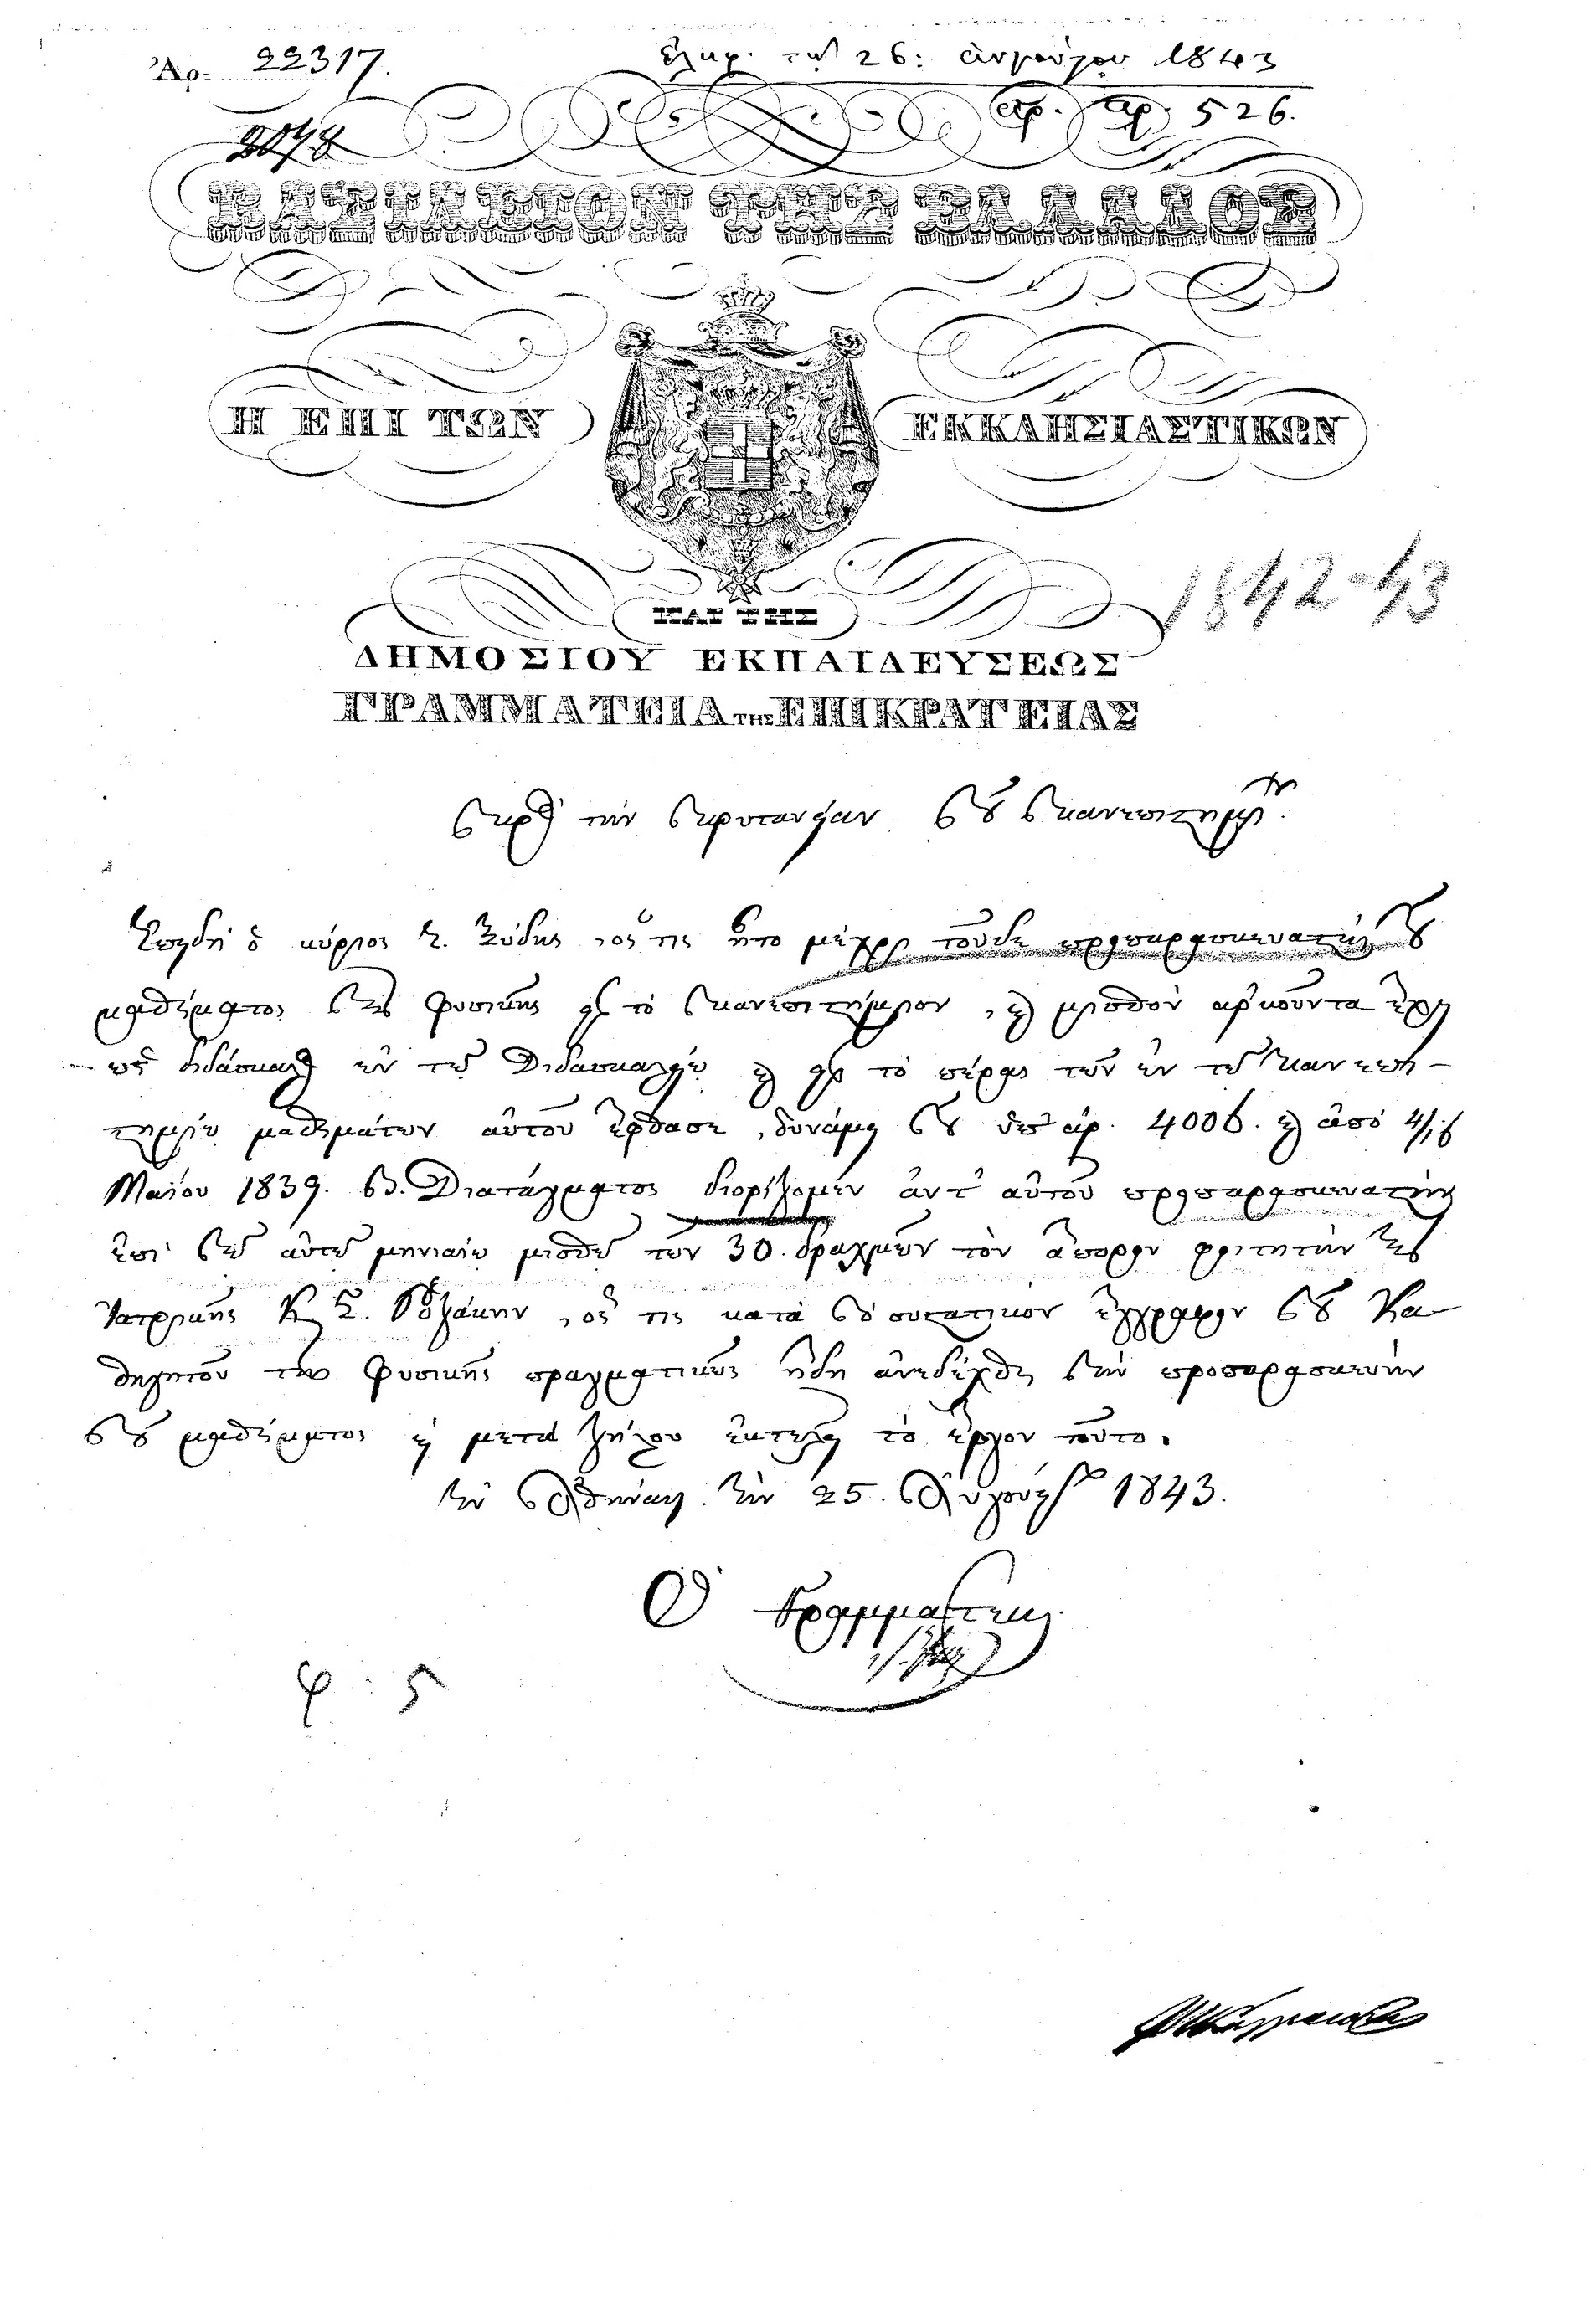 Ἀρ. 22317.
ἐλήφ. τῇ 26: αὐγούστου 1843
αρ. πρ. 526.
ΒΑΣΙΛΕΙΟΝ ΤΗΣ ΕΛΛΑΔΟΣ
Η ΕΠΙ ΤΩΝ ΕΚΚΛΗΣΙΑΣΤΙΚΩΝ
1842-43
ΚΑΙ ΤΗΣ
ΔΗΜΟΣΙΟΥ ΕΚΠΑΙΔΕΥΣΕΩΣ
ΓΡΑΜΜΑΤΕΙΑ ΤΗΣ ΕΠΙΚΡΑΤΕΙΑΣ
Πρὸς τὴν Πρυτανείαν τοῦ Πανεπιστημίου
Ἐπειδὴ ὁ κύριος Σ. ὅς τις ἦτο μέχρι τοῦδε προπαρασκευαστὴς τοῦ
μαθήματος τῆς Φυσικῆς εἰς τὸ Πανεπιστήμιον, καὶ μισθὸν ἀρκοῦντα ἔχει
ὡς διδάσκαλος ἐν τῷ Διδασκαλείῳ καὶ εἰς τὸ πέρας τῶν ἐν τῷ Πανεπι-
στημίῳ μαθημάτων αὐτοῦ ἔφθασε, δυνάμει τοῦ ὑπ' ἀρ. 4006. καὶ ἀπὸ 4/16
Μαΐου 1839. Διατάγματος διορίζομεν ἀντ' αὐτοῦ προπαρασκευαστὴν
ἐπὶ τῷ αὐτῷ μηνιαίῳ μισθῷ τῶν 30. δραχμῶν τὸν ἄπορον φοιτητὴν τῆς
Ἰατρικῆς Κ. Σ. ὅς τις κατὰ τὸ συστατικὸν ἔγγραφον τοῦ Κα
θηγητοῦ τῆς Φυσικῆς πραγματικῶς ἤδη ἀνεδέχθη τὴν προπαρασκευὴν
τοῦ μαθήματος καὶ μετὰ ζήλου ἐκτελεῖ τὸ ἔργον τοῦτο.
Ἐν Ἀθήναις τὴν 25. Αὐγούστου 1843.
Ὁ Γραμματεὺς
φ : 5